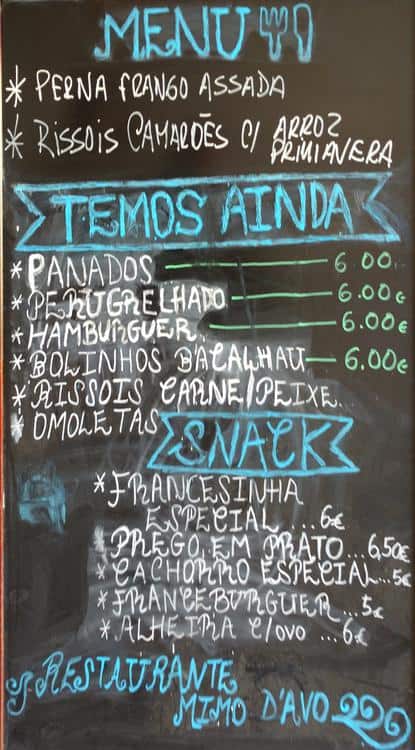 MENU
* PERNA FRANGO ASSADA
* RISSOIS CAMARÕES C/ ARROZ
PRIMAVERA
TEMOS AINDA
* PANADOS 6.00
* PERU GRELHADO 6.00€
* HAMBURGUER 6.00€
* BOLINHOS BACALHAU 6.00€
* RISSOIS CARNE/PEIXE
* OMOLETAS
SNACK
* FRANCESINHA
ESPECIAL ... 6€
* PREGO EM PRATO ... 6,50€
* CACHORRO ESPECIAL ... 5€
* FRANCEBURGUER ... 5€
* ALHEIRA C/OVO ... 6€
RESTAURANTE
MIMO D'AVO